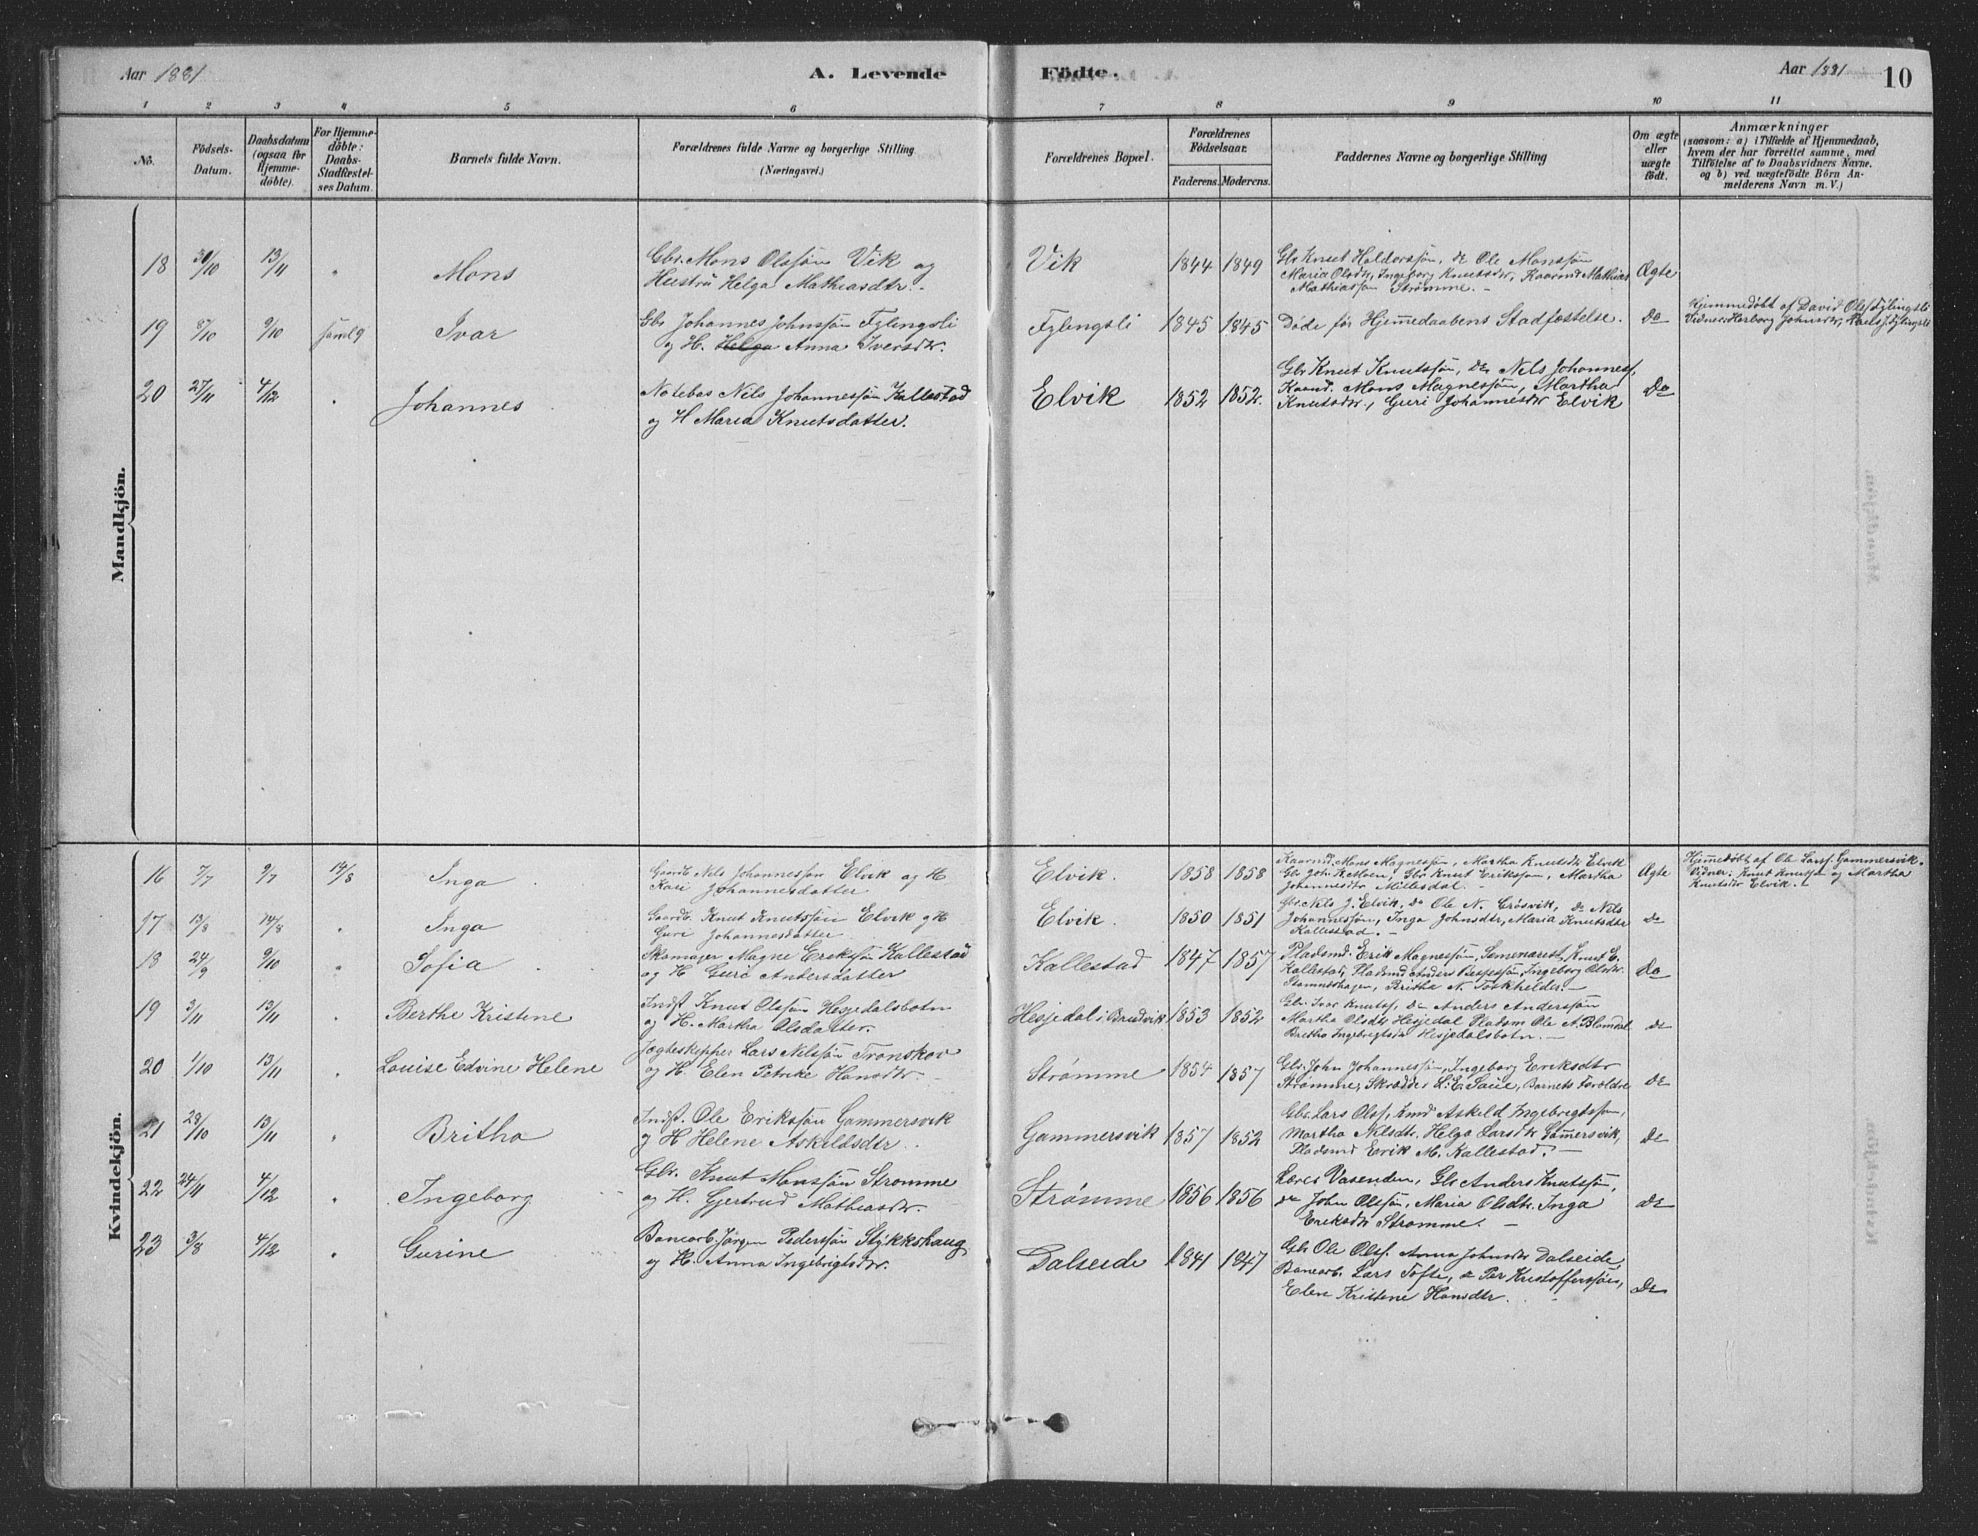 Aar 1881
A. Levende Födte.
Aar 1881 10
1 2 3 4 5 6 7 8 9 10 11
No.
Födsels-Datum.
Daabsdatum (ogsaa for Hjemme-döbte).
For Hjemme-döbte: Daabs-Stadfæstel-ses Datum.
Barnets fulde Navn.
Forældrenes fulde Navne og borgerlige Stilling (Næringsvei.)
Forældrenes Bopæl.
Forældrenes Födselsaar.
Faderens. Moderens.
Faddernes Navne og borgerlige Stilling
Om ægte eller uægte födt.
Anmærkninger
(saasom: a) i Tilfælde af Hjemmedaab, hvem der har forrettet samme, med Tilföielse af to Daabsvidners Navne. og b) ved uægtefödte Börn An-melderens Navn m. V.)
Mandkjön.
18 30/10 13/11 " Mons
Gbr. Mons Olssön Vik og
Hustru Helga Mathiasdtr.
Vik 1844 1849
Gbr Knut Haldorssön, do Ole Monssön
Maria Olsdtr, Ingeborg Knutsdtr, Kaarmd Mathias
Mathiassøn Strömme. -
Ægte
19 8/10 9/10 Ivar
Gbr Johannes Johnssön Fylingsli
og H. Helga Anna Iversdtr.
Fylingsli 1845 1845
Döde før Hjemmedaabens Stadfæstelse. Do
Hjemmedøbt af David Olss Fylingsli
Vidner: Herborg Johnsdtr, Fylingsli
20 27/11 4/12 " Johannes
Notebas Nils Johannessön Kallestad
og H Maria Knutsdatter.
Elvik 1852 1852.
Gbr Knut Knutssön, do Nils Johanness,
Kaarmd. Mons Magnessön, Martha
Knutsdtr., Guri Johannesdtr Elvik
Do
Kvindekjön.
16 7/7 9/7 14/8 Inga
Gaardb Nils Johannesson Elvik og H
Kari Johannesdatter
Elvik. 1858 1858
Kaarmd. Mons Magnessön, Martha Knutsdtr Elvik
Gbr Knut Eriksson, Martha
Johannesdtr Millesdal.
Ægte
Hjemedøbt af Ole Larss. Gammersvik.
Vidner: Knut Knutsson og Martha
Knutsdtr Elvik. -
17 13/8 14/8 " Inga
Gaardb. Knut Knutssön Elvik og H
Guri Johannesdatter
Elvik. 1850 1851
Gbr. Nils J. Elvik, do Ole N. Grösvik, do Nils
Johannessön, Inga Johnsdtr, Maria Knutsdtr
Kallestad. -
do
18 24/9 9/10 " Sofia
Skomager Magne Erikssön Kallestad
og H Guri Andersdatter
Kallestad 1847 1857
Pladsmd. Erik Magnessön, Semenarest Knut E.
Kallestad, Pladsmd Anders, Ingeborg Olsdtr.
Stamneshagen, Britha N.
Do
19 3/11 13/11 " Berthe Kristene
Indst Knut Olssön Hesjedalsbotn
og H. Martha Olsdatter.
Hesjedal i Bruvik 1853 1852
Gbr. Ivar Knutss, do Anders Anderssön
Martha Olsdtr Hesjedal Pladsm Ole A. Blomdal
Britha Ingebrigtsdr Hesjedalsbotn. -
do
20 1/10 13/11 " Louise Edvine Helene
Jægteskipper Lars Nilssön Tronskov
og H. Elen Petrike Hansdtr. -
Strømme 1854 1857
Gbr. John Johannessön, Ingeborg Eriksdtr
Strømme, Skrædder L. E. Saue, Barnets Foroldre
do
21 28/10 13/11 " Britha
Indst. Ole Erikssön Gammersvik
og H Helene Askildsdtr
Gammersvik 1857 1852
Gbr. Lars Olss, Kmd Askeld Ingebrigtssøn,
Martha Nilsdtr, Helga Larsdtr Gamersvik,
Pladsmd Erik M. Kallestad. -
do
22 24/11 4/12 " Ingeborg
Gbr. Knut Monssön Stromme
og H. Gjertrud Mathiasdtr.
Strømme 1856 1856
Lærer Vasenden, Gbr Anders Knutssön,
do John Olssön, Maria Olsdtr. Inga
Eriksdtr Strømme. -
do
23 3/8 4/12 " Gurine
Banearb. Jörgen Pederssön Stykkshaug
og H. Anna Ingebrigtsdtr.
Dalseide 1841 1847
Gbr Ole Olss. Anna Johnsdtr Dalseide,
Banearb. Lars Tofte, do Per Kristofferssön,
Elen Kristene Hansdtr.
Do